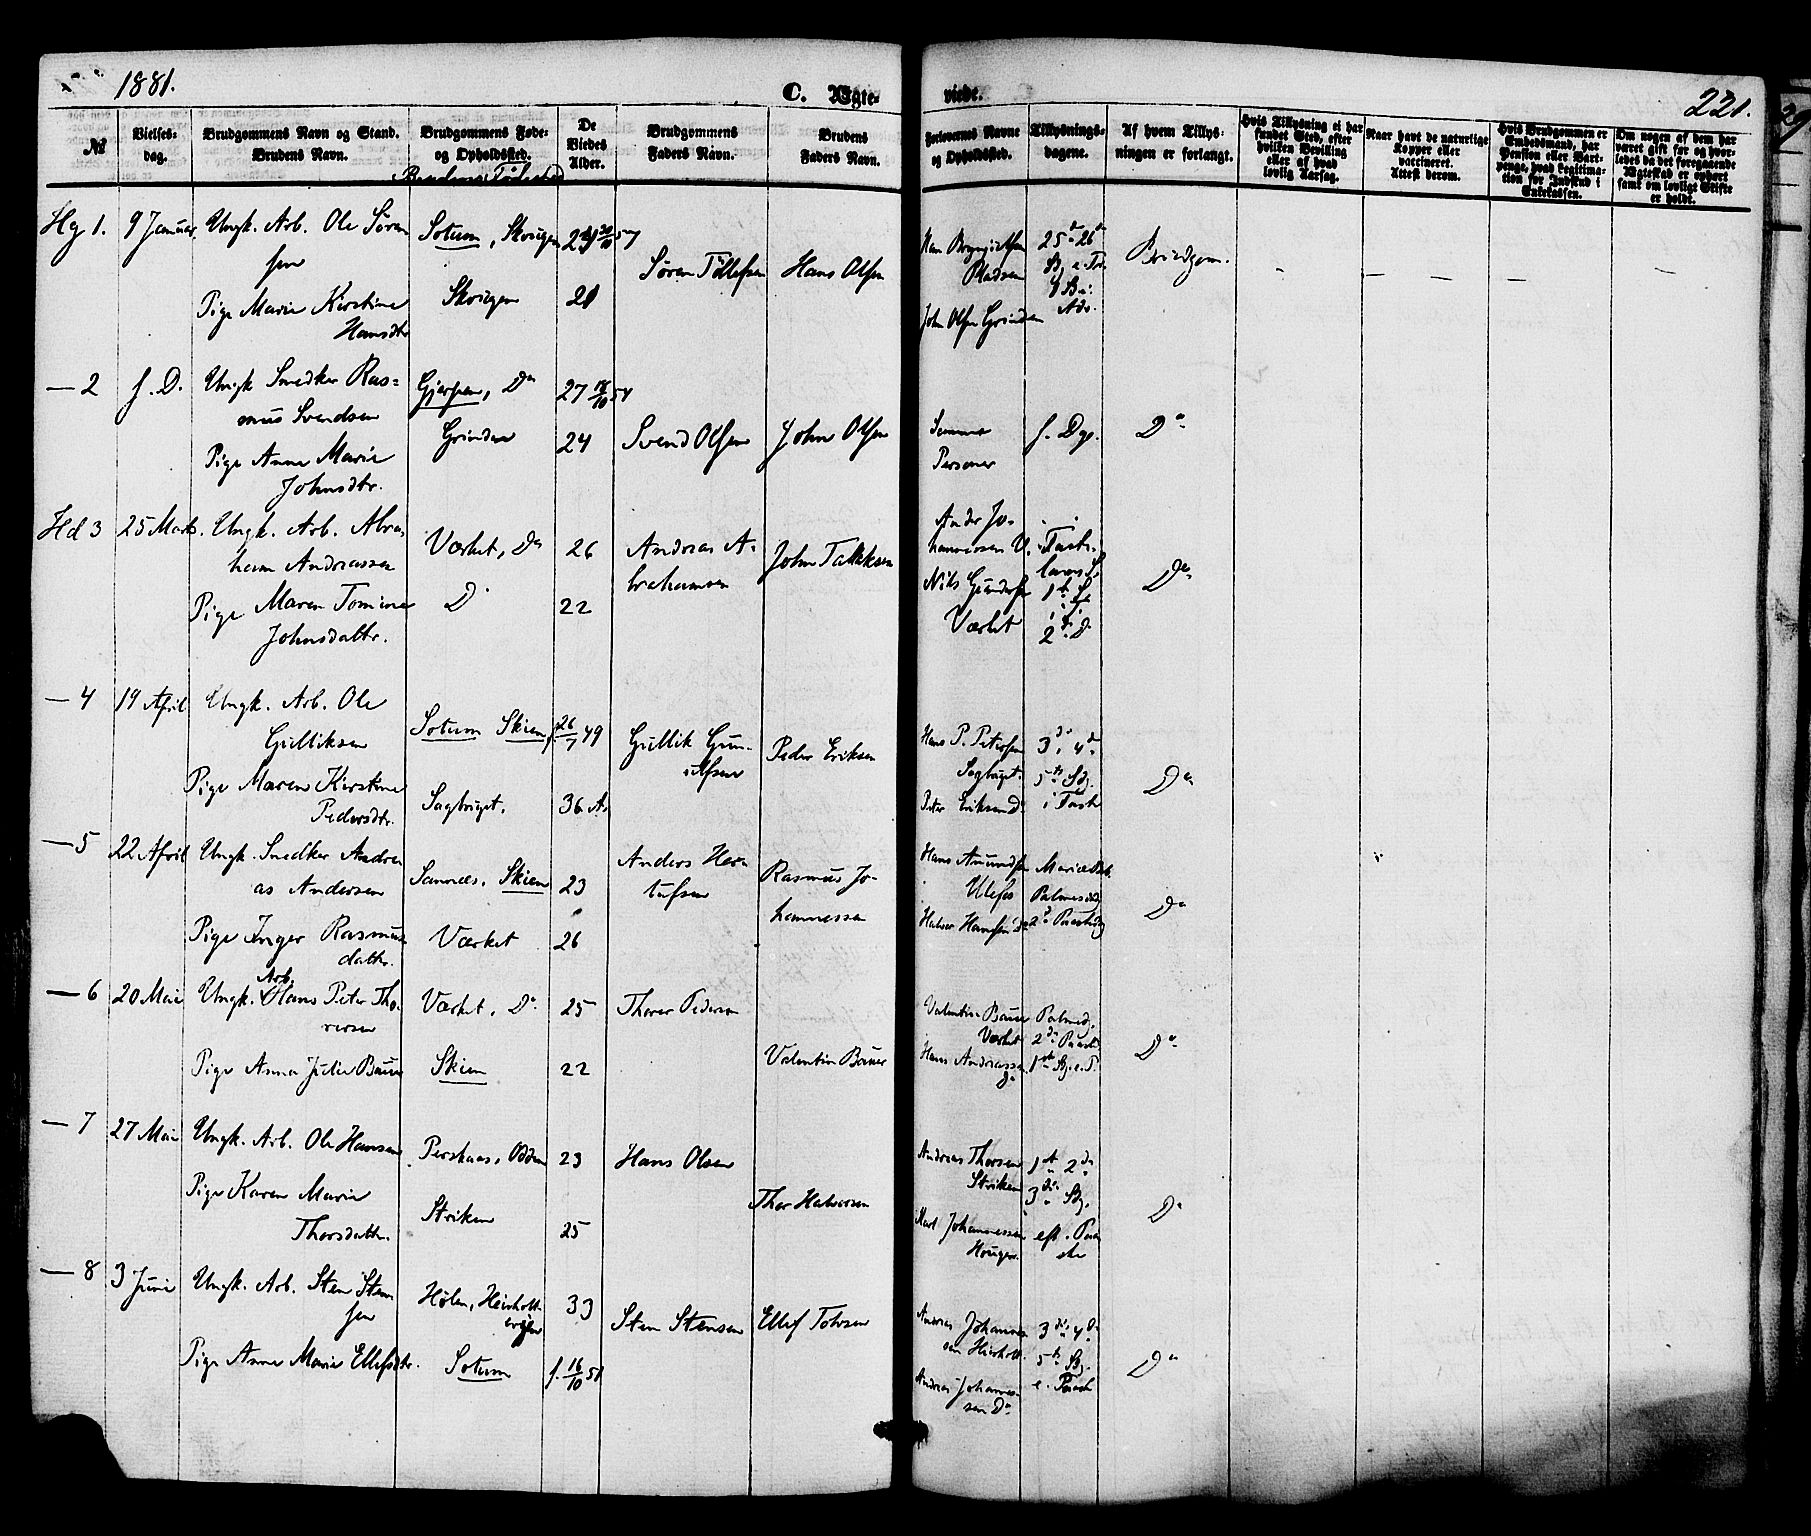 1881.
C. Ægte-
viede.
221.
№
Vielses-
dag.
Brudgommens Navn og Stand.
Brudens Navn.
Brudgommens Føde-
og Opholdssted.
Brudens Fødested
De
Viedes
Alder.
Brudgommens
Faders Navn.
Brudens
Faders Navn.
Forlovernes Navne
og Opholdssted.
Tillysnings-
dagene.
Af hvem Tillys-
ningen er forlangt.
Hvis Tillysning ei har
fundet Sted, efter
hvilken Bevilling
eller af hvad
lovlig Aarsag.
Naar havt de naturlige
Kopper eller
vaccineret.
Attest derom.
Hvis Brudgommen er
Embedsmand, har
Pension eller Vart-
penge, hvad Legitima-
tion for Indskud i
Enkekassen.
Om nogen af dem har
været gift før og hvor-
ledes da det foregaaende
Ægteskab er ophørt
samt om lovligt Skifte
er holdt.
Hg 1.
9 Januar
Ungk. Arb. Ole Søren
sen
Pige Marie Kirstine
Hansdtr
Solum, Skougen
Skougen
30/10 57
21
Søren Tollefsen
Hans Olsen
Pladsen
John Olsen Grinden
25de 26de
Brudgom.
— 2
s. D.
Ungk Snedker Ras-
mus Svendsen
Pige Anne Marie
Johnsdtr.
Gjerpen, Do
Grinden
27 18/10 54
24
Svend Olsen
John Olsen
Samme
Personer
s. Dge.
Do
Hd 3
25 Marts.
Ungk. Arb. Abra-
ham Andreassen
Pige Maren Tomine
Johnsdattr.
Værket, Do
Do
26
22
Andreas A-
brahamsen
John Tallaksen
Andr Jo-
hannessen V.
Nils Gundersen
Værket
Do
— 4
19 April
Ungk. Arb. Ole
Gulliksen
Pige Maren Kirstine
Pedersdtr.
Solum Skien
Sagbruget.
f. 26/7 49
36 A.
Gullik Gun-
ulfsen
Peder Eriksen
Hans P. Petersen
Sagbruget.
Peter Eriksen Do
3die 4de
5te Sdg.
i Faste
Do
— 5
22 April
Ungk. Snedker Andre
as Andersen
Pige Inger Rasmus-
dattr.
Sannes, Skien
Værket
23
26
Anders Her-
lufsen
Rasmus Jo-
hannessen
Hans Amundsen
Ulefos
Halvor Hansen Do
Mariæ Beb.
Palmesdg
2den Paaskedg
Do
— 6
20 Mai
Arb.
Ungk. Hans Peter Tho-
rersen
Pige Anna Julie Bauer
Værket, Do
Skien
25
22
Thorer Pedersen
Valentin Bauer
Valentin Bauer
Værket
Hans Andreassen
Do
Palmed.
2den Paaske
1ste Sdg. e. P.
Do
— 7
27 Mai
Ungk. Arb. Ole Hansen
Pige Karen Marie
Thorsdattr.
Pershaas, Odden
Striken
23
25
Hans Olsen
Thor Halvorsen
Andreas Thorsen
Striken
Mart Johannessen
Hougen.
1ste 2den
3die Sdg.
eft. Paa
ske
Do
— 8
3 Juni
Ungk. Arb. Sten Sten-
sen
Pige Anne Marie Ellefsdtr.
Holen, Heisholt
Solum
33
f. 16/10 51
Sten Stensen
Ellef Tovsen
Andreas Johannes-
sen Heisholt.
Andreas Johannes-
sen Do
3die 4de
5te Sdg.
e. Paask
Do